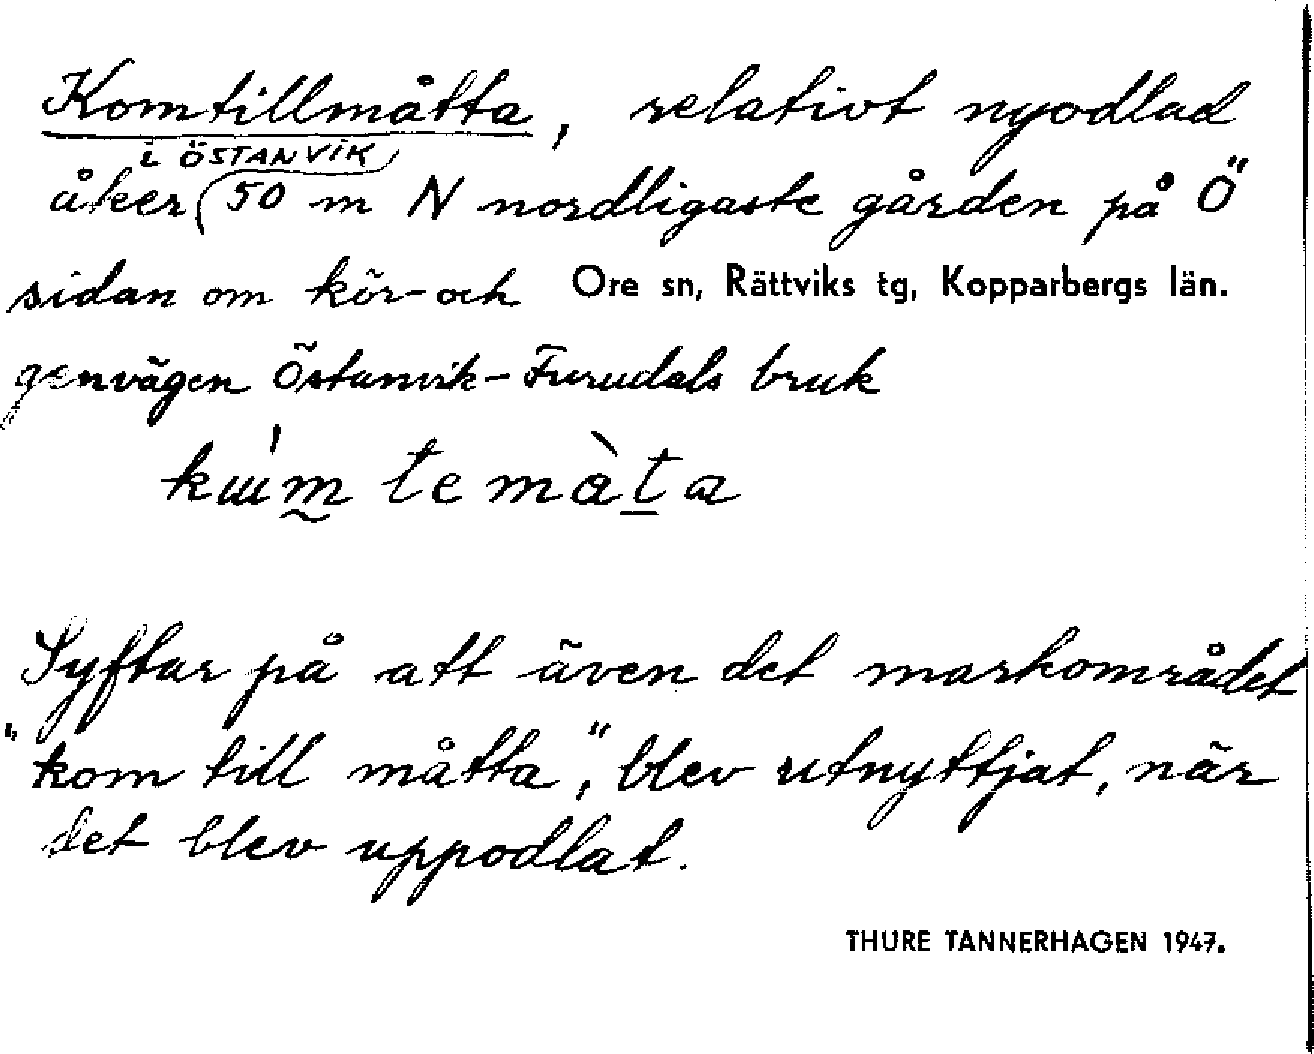 Komtillmåtta, relativt nyodlad
i ÖSTANVIK
åker 50 m N nordligaste gården på Ö
sidan om kör- och Ore sn, Rättviks tg, Kopparbergs län.
genvägen Östanvik-Furudals bruk
kɯ́m̰ te màt̲a
Syftar på att även det markområdet
"kom till måtta", blev utnyttjat, när
det blev uppodlat.
THURE TANNERHAGEN 1947.